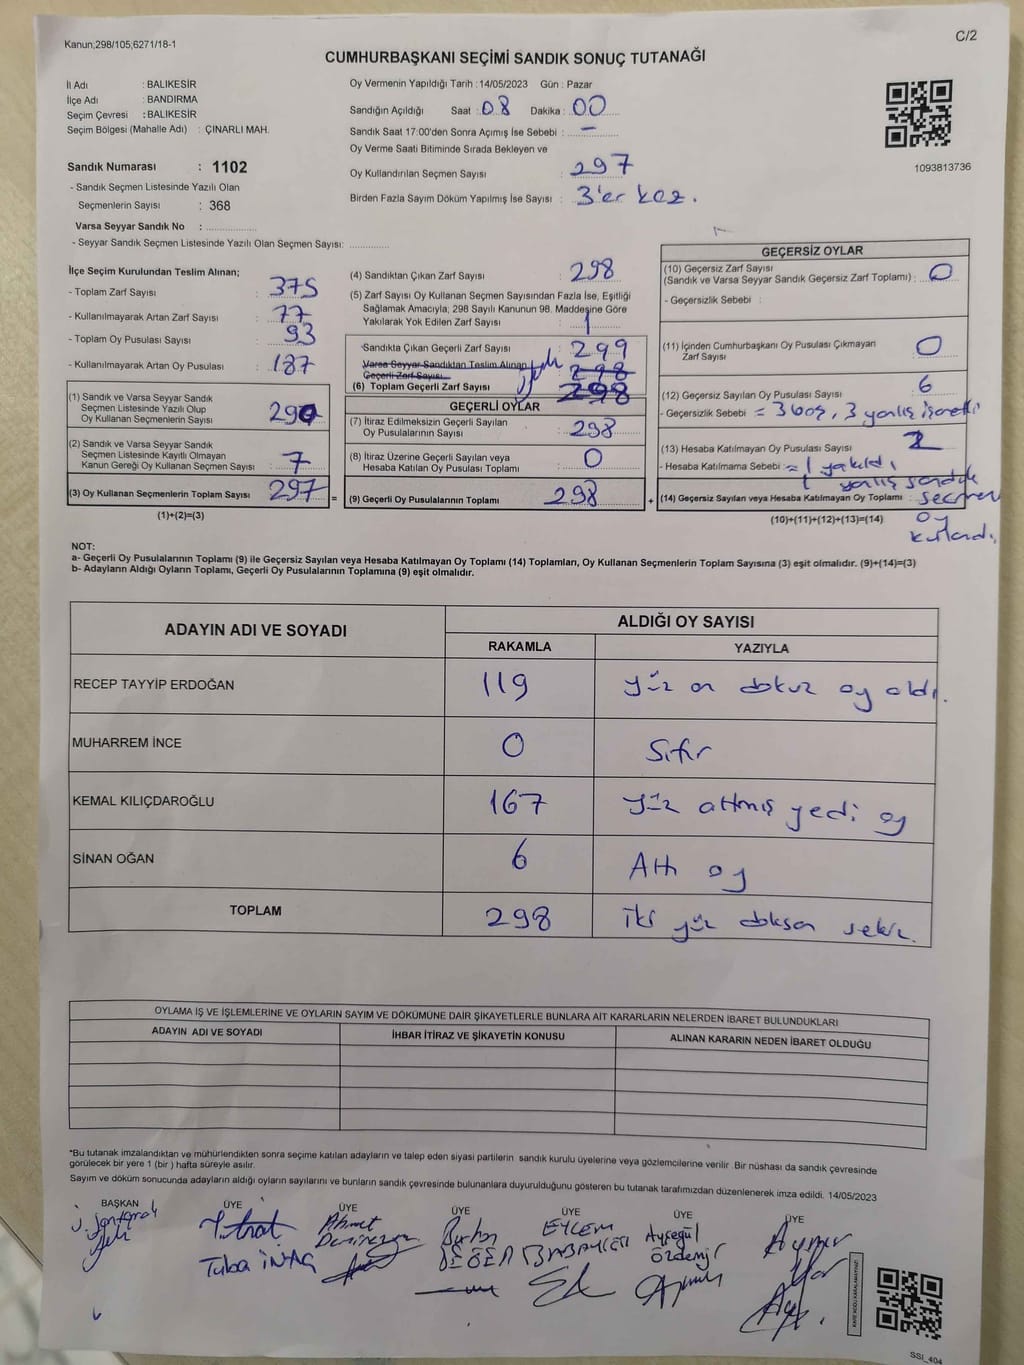 Kanun;298/105,6271/18-1
C/2
CUMHURBAŞKANI SEÇİMİ SANDIK SONUÇ TUTANAĞI
İl Adı : BALIKESİR
İlçe Adı : BANDIRMA
Seçim Çevresi : BALIKESİR
Seçim Bölgesi (Mahalle Adı) : ÇINARLI MAH.
Sandık Numarası : 1102
- Sandık Seçmen Listesinde Yazılı Olan
Seçmenlerin Sayısı : 368
Varsa Seyyar Sandık No : ..............
- Seyyar Sandık Seçmen Listesinde Yazılı Olan Seçmen Sayısı: ............
Oy Vermenin Yapıldığı Tarih : 14/05/2023 Gün : Pazar
Sandığın Açıldığı Saat : 08 Dakika : 00
Sandık Saat 17:00'den Sonra Açımış İse Sebebi : -
Oy Verme Saati Bitiminde Sırada Bekleyen ve
Oy Kullandırılan Seçmen Sayısı : 297
Birden Fazla Sayım Döküm Yapılmış İse Sayısı : 3'er kez.
1093813736
İlçe Seçim Kurulundan Teslim Alınan;
- Toplam Zarf Sayısı : 375
- Kullanılmayarak Artan Zarf Sayısı : 77
- Toplam Oy Pusulası Sayısı : 93
- Kullanılmayarak Artan Oy Pusulası : 187
(1) Sandık ve Varsa Seyyar Sandık
Seçmen Listesinde Yazılı Olup
Oy Kullanan Seçmenlerin Sayısı 290
(2) Sandık ve Varsa Seyyar Sandık
Seçmen Listesinde Kayıtlı Olmayan
Kanun Gereği Oy Kullanan Seçmen Sayısı : 7
(3) Oy Kullanan Seçmenlerin Toplam Sayısı 297 =
(1)+(2)=(3)
(4) Sandıktan Çıkan Zarf Sayısı : 298
(5) Zarf Sayısı Oy Kullanan Seçmen Sayısından Fazla İse, Eşitliği
Sağlamak Amacıyla; 298 Sayılı Kanunun 98. Maddesine Göre
Yakılarak Yok Edilen Zarf Sayısı : 1
Sandıkta Çıkan Geçerli Zarf Sayısı : 299
Varsa Seyyar Sandıktan Teslim Alınan
Geçerli Zarf Sayısı 298
(6) Toplam Geçerli Zarf Sayısı 298
GEÇERLİ OYLAR
(7) İtiraz Edilmeksizin Geçerli Sayılan
Oy Pusulalarının Sayısı : 298
(8) İtiraz Üzerine Geçerli Sayılan veya
Hesaba Katılan Oy Pusulası Toplamı : 0
(9) Geçerli Oy Pusulalarının Toplamı 298 +
GEÇERSİZ OYLAR
(10) Geçersiz Zarf Sayısı
(Sandık ve Varsa Seyyar Sandık Geçersiz Zarf Toplamı) : 0
- Geçersizlik Sebebi :
(11) İçinden Cumhurbaşkanı Oy Pusulası Çıkmayan
Zarf Sayısı 0
(12) Geçersiz Sayılan Oy Pusulası Sayısı 6
- Geçersizlik Sebebi = 3 boş, 3 yanlış işaretli
(13) Hesaba Katılmayan Oy Pusulası Sayısı 2
- Hesaba Katılmama Sebebi = 1 yakıldı
1 yanlış sandık
(14) Geçersiz Sayılan veya Hesaba Katılmayan Oy Toplamı : seçmen
(10)+(11)+(12)+(13)=(14)
oy
kullandı.
NOT:
a- Geçerli Oy Pusulalarının Toplamı (9) ile Geçersiz Sayılan veya Hesaba Katılmayan Oy Toplamı (14) Toplamları, Oy Kullanan Seçmenlerin Toplam Sayısına (3) eşit olmalıdır. (9)+(14)=(3)
b- Adayların Aldığı Oyların Toplamı, Geçerli Oy Pusulalarının Toplamına (9) eşit olmalıdır.
ADAYIN ADI VE SOYADI
ALDIĞI OY SAYISI
RAKAMLA YAZIYLA
RECEP TAYYİP ERDOĞAN 119 yüz on dokuz oy aldı.
MUHARREM İNCE 0 Sıfır
KEMAL KILIÇDAROĞLU 167 yüz altmış yedi oy
SİNAN OĞAN 6 Altı oy
TOPLAM 298 iki yüz doksan sekiz.
OYLAMA İŞ VE İŞLEMLERİNE VE OYLARIN SAYIM VE DÖKÜMÜNE DAİR ŞİKAYETLERLE BUNLARA AİT KARARLARIN NELERDEN İBARET BULUNDUKLARI
ADAYIN ADI VE SOYADI İHBAR İTİRAZ VE ŞİKAYETİN KONUSU ALINAN KARARIN NEDEN İBARET OLDUĞU
*Bu tutanak imzalandıktan ve mühürlendikten sonra seçime katılan adayların ve talep eden siyasi partilerin sandık kurulu üyelerine veya gözlemcilerine verilir .Bir nüshası da sandık çevresinde
görülecek bir yere 1 (bir ) hafta süreyle asılır.
Sayım ve döküm sonucunda adayların aldığı oyların sayılarını ve bunların sandık çevresinde bulunanlara duyurulduğunu gösteren bu tutanak tarafımızdan düzenlenerek imza edildi. 14/05/2023
BAŞKAN ÜYE ÜYE ÜYE ÜYE ÜYE ÜYE
Tuba İNAÇ
Ahmet
Burhan
EYLEM
Ayşegül
Özdemir
SSİ_404